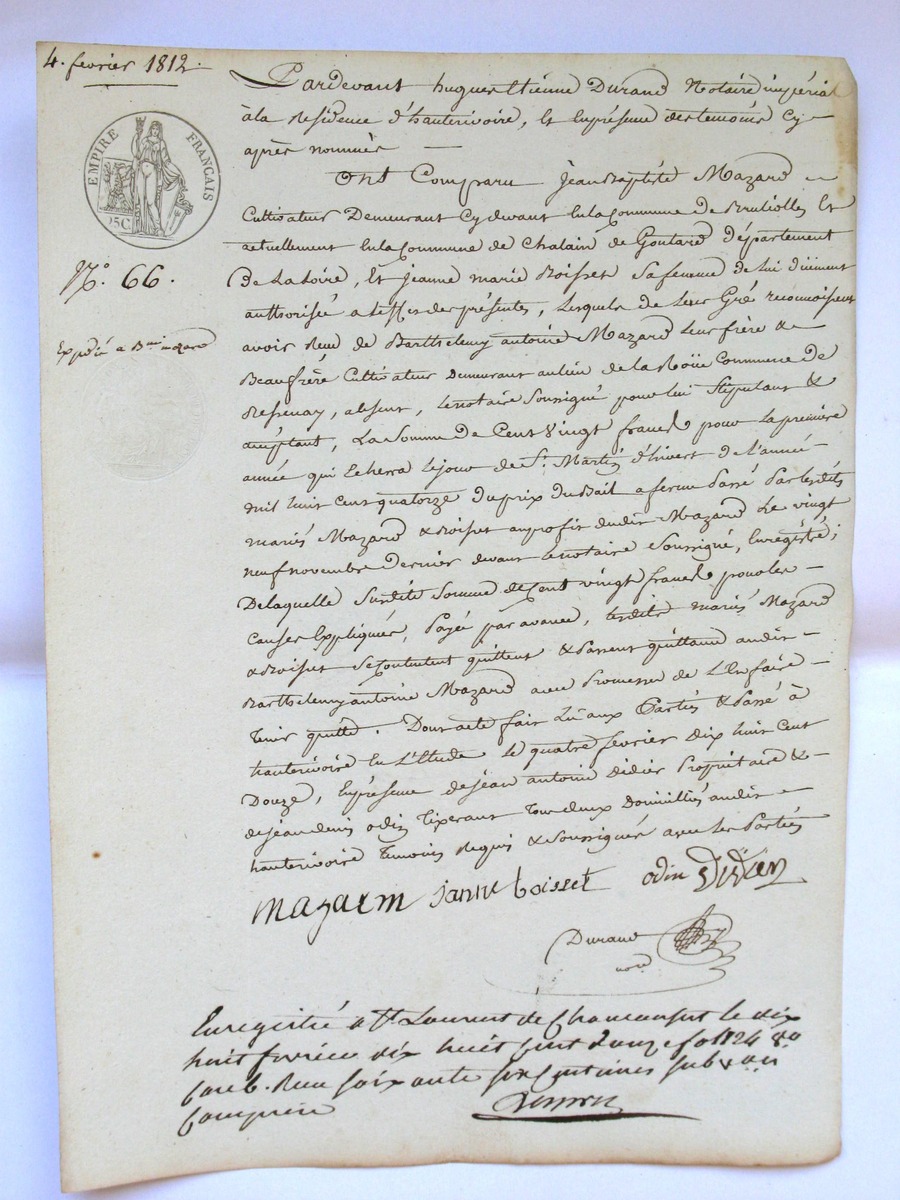 4. fevrier 1812.
EMPIRE FRANÇAIS
25C
N.o 66.
Expédié a B.mi mazard
Pardevant hugues Etienne Durand Notaire impérial
à la Residence d'hauterivoire, Et Enprésence destemoins Cy
après nommés —
Ont Comparu Jean Baptiste Mazard
Cultivateur Demeurant Cydevant Enla Commune de Bruliolles Et
actuellement Enla Commune de Chalain de Goutard département
De La Loire, Et jeanne marie Boisset Safemme de Lui dûment
authorisée a l'effet des présentes, Lesquels de Leur Gré reconnoissent
avoir Reçu de Barthelemy antoine Mazard Leur frère &
Beaufrère Cultivateur Demeurant aulieu de la Commune de
absent, Lenotaire Soussigné pour lui Stipulant &
acceptant, La Somme de Cent Vingt francs pour La première
année qui Echerra Lejour de St. Martin d'hivert de L'année
mil huit Cent quatorze du prix du Bail a ferme Passé Par lesdits
mariés Mazard & Boisset au profit dudit Mazard Le vingt
neuf novembre Dernier devant Lenotaire Soussigné, Enregistré;
Delaquelle Susdite Somme de Cent vingt francs pour les
Causes Expliquées, Payée par avance, lesdits mariés Mazard
& Boisset Se Contentent quittent & Passent quittance audit
Barthelemy antoine Mazard avec Promesse de L'En faire
tenir quitte. Dont acte fait Lu aux Parties & Passé à
hauterivoire En L'Etude Le quatre fevrier dix huit Cent
Douze, Enprésence de jean antoine didier Propriétaire &
de jean denis odin Tixerant Tous deux Domiciliés audit
hauterivoire Temoins Requis & Soussignés avec les Parties
mazarm janne boisset odin Didier
Durand
not.
Enregistré a St. Laurent de Chamousset le dix
huit fevrier dix huit cent douze fo 124 Vo
Case 6. Reçu soixante six Centimes subvention
Comprise